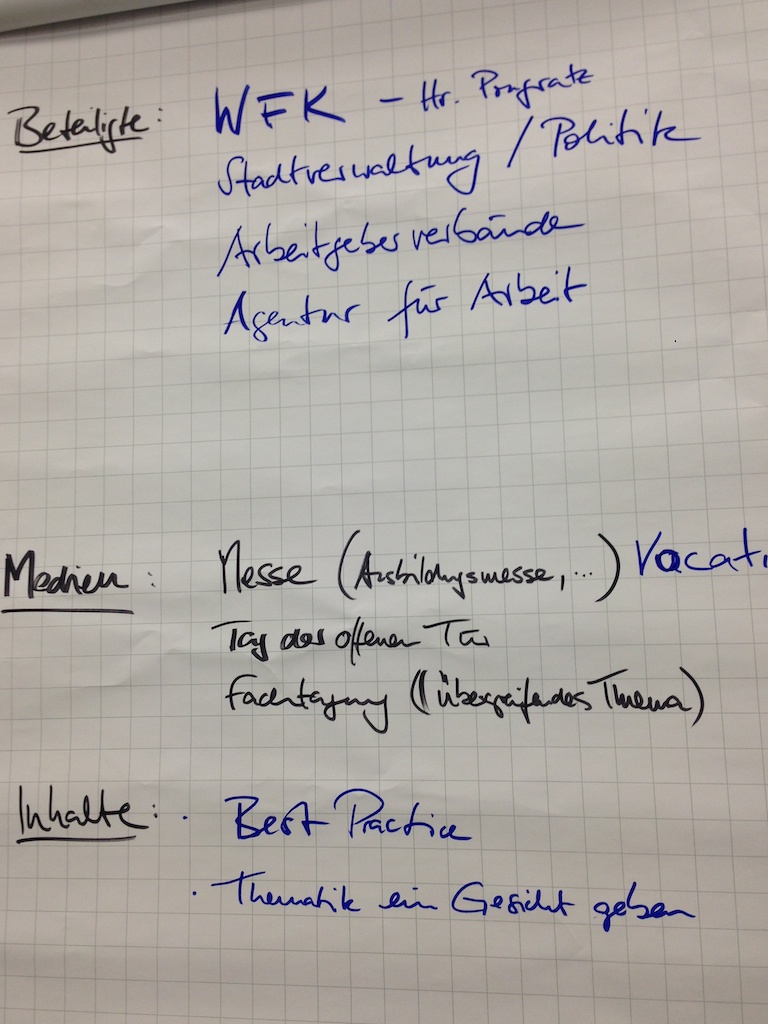 Beteiligte: WFK - Hr. Pongratz
Stadtverwaltung / Politik
Arbeitgeberverbände
Agentur für Arbeit
Medien: Messe (Ausbildungsmesse, ...) Vocati
Tag der offenen Tür
Fachtagung (übergreifendes Thema)
Inhalte: · Best Practice
· Thematik ein Gesicht geben